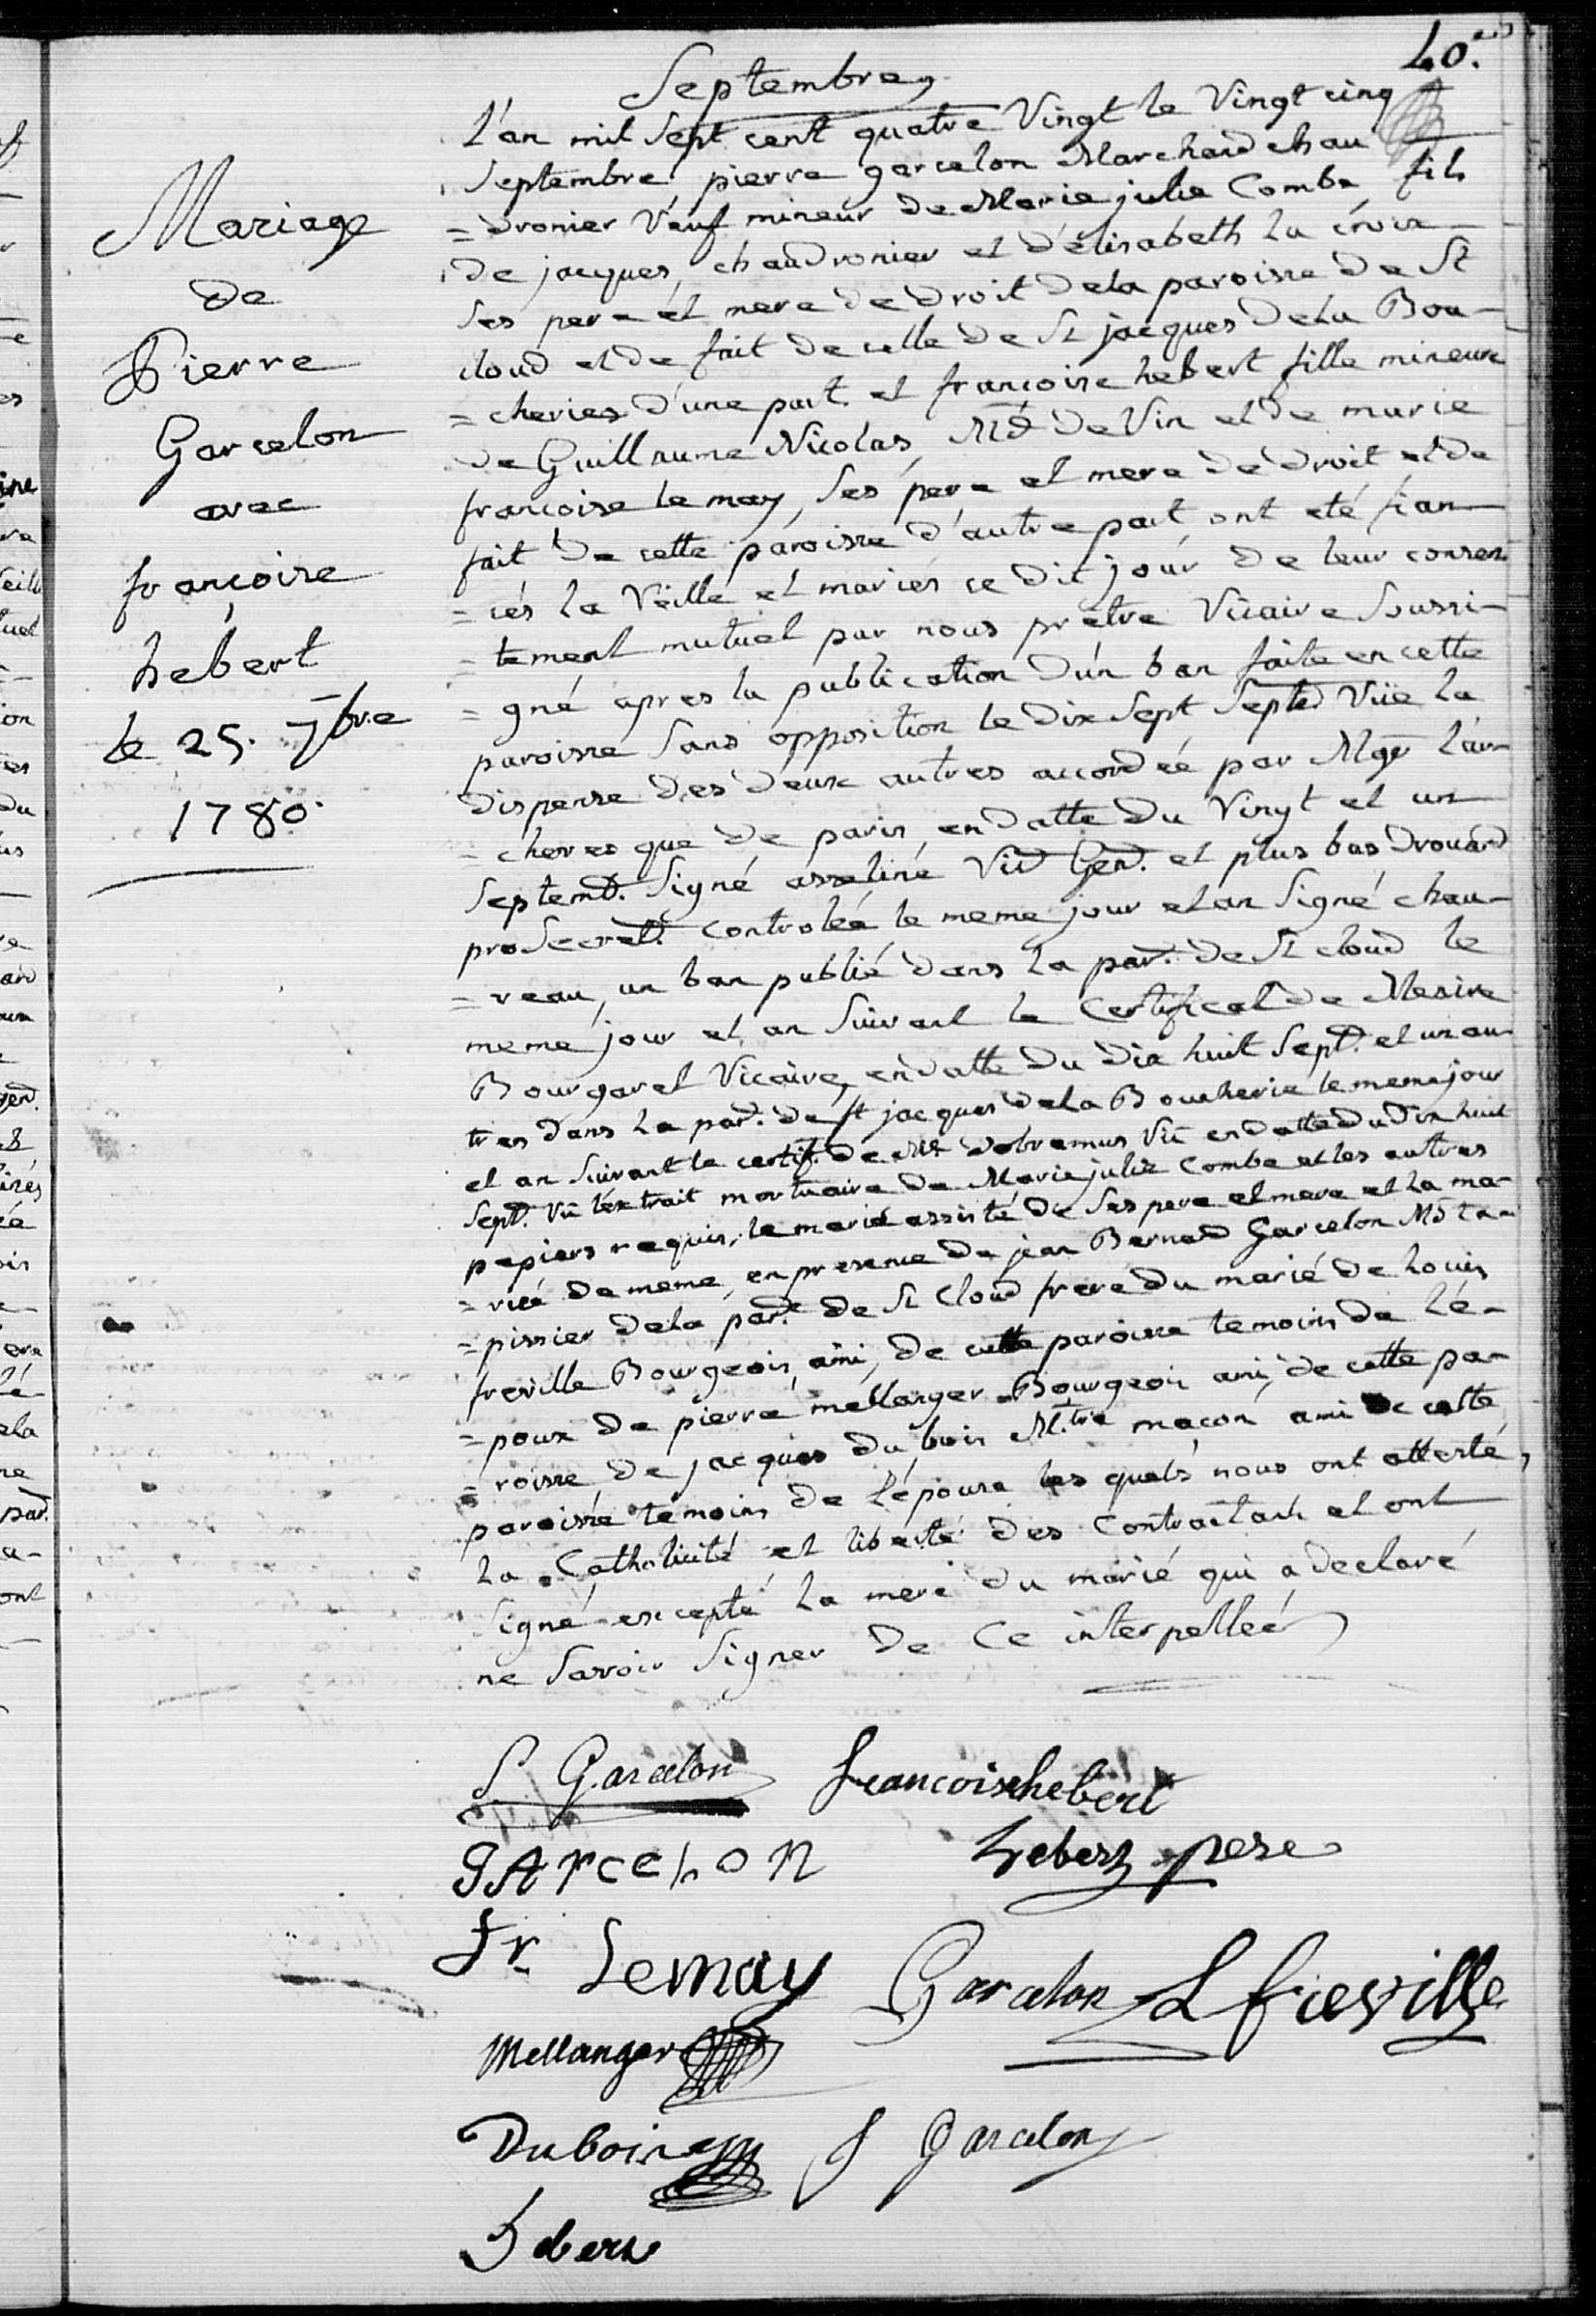 40.
Septembre
L'an mil Sept cent quatre Vingt le Vingt cinq
Septembre, pierre garcelon Marchand chau
=dronier Veuf mineur de Marie julie Combe fils
de jacques, chaudronier et d'élisabeth la croix
Ses pere et mere de droit dela paroisse de St
cloud et de fait de celle de St jacques dela Bou-
=cheries d'une part et francoise hebert fille mineure
de Guillaume Nicolas, Md de Vin et de marie
francoise le may, Ses pere et mere de droit et de
fait de cette paroisse d'autre part ont eté fian-
=cés la Veille et mariés ce dit jour de leur consen
=tement mutuel par nous prêtre Vicaire Soussi-
=gné apres la publication d'un ban faite en cette
paroisse Sans opposition le dix Sept Septd. Vüe la
dispense des deux autres accordée par Mgr l'ar-
=cheves que de paris, en datte du Vingt et un
Septemd. Signé asseline Vid Gend. et plus bas drouard
pro Secretd. Controlée le meme jour et an Signé chau-
=veau, un ban publié dans la pard. de St cloud le
meme jour et an Suivant le Certificat de Mesire
Bourgaret Vicaire, en datte du dix huit Septd. et un au
tres dans la pard. de St jacques dela Boucherie le meme jour
et an Suivant le certif. de Mr dobremus Vic en datte du dix huit
Septd. Vu l'extrait mortuaire de Marie julie Combe et les autres
papiers requis, le marié assisté de Ses pere et mere et la ma-
=riée de meme, en presence de jean Bernard Garcelon Md ta-
=pissier dela pard. de St Cloud frere du marié de Louis
freville Bourgeois, ami, de cette paroisse temoins de l'é-
=poux de pierre mellanger Bourgeois ami, de cette pa-
=roisse, de jacques du bois M.tre macon ami de cette
paroisse temoins de l'épouse les quels nous ont attesté,
la Catholicité et liberté des Contractants et ont
Signé excepté la mere du marié qui a declaré
ne Savoir Signer de Ce interpellée
Mariage
de
Pierre
Garcelon
avec
françoise
hébert
le 25. 7bre
1780.
P. Garcelon francoisehebert
GArceLon hebert pere
fr Lemay Garcelon L frieville
Mellanger
Dubois J Garcelon
hebert